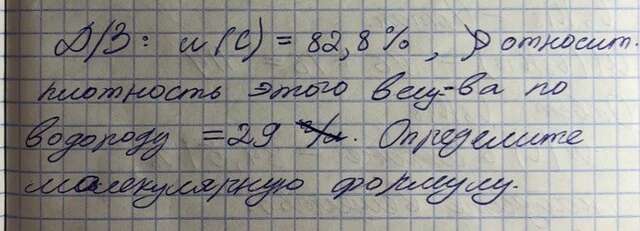 Д/З: w(C) = 82,8%, D относит.
плотность этого вещ-ва по
водороду = 29. Определите
молекулярную формулу.